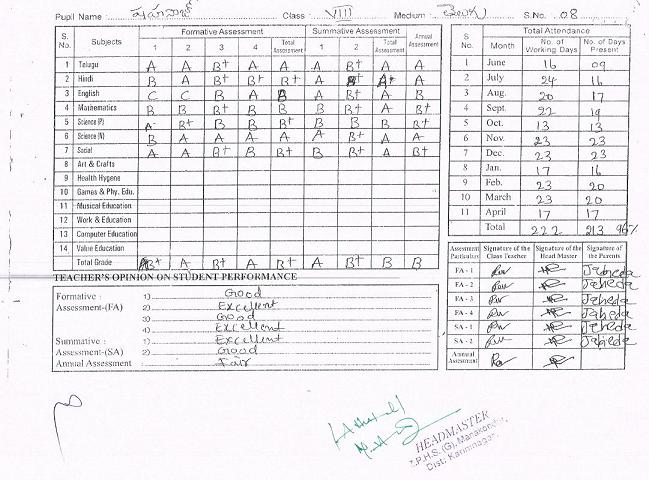 Pupil Name Class VIII Medium S.No. 08
S. No. Subjects Formative Assessment Summative Assessment Annual Assessment
1 2 3 4 Total Assessment 1 2 Total Assessment
1 Telugu A A B+ A A A B+ A A
2 Hindi B A B+ B+ B+ A B+ A+ A
3 English C C B A B A B+ A B
4 Mathematics B B B+ B B B B+ A B+
5 Science (P) A- B+ B B B+ B B B B+
6 Science (N) B A A A A A B+ A A
7 Social A A B+ B B+ B B+ A B+
8 Art & Crafts
9 Health Hygene
10 Games & Phy. Edu.
11 Musical Education
12 Work & Education
13 Computer Education
14 Value Education
Total Grade B+ A B+ A B+ A B+ B B
S No. Month Total Attendance
No. of Working Days No. of Days Present
1 June 16 09
2 July 24 16
3 Aug. 20 17
4 Sept. 22 19
5 Oct. 13 13
6 Nov. 23 23
7 Dec. 23 23
8 Jan. 17 16
9 Feb. 23 20
10 March 23 20
11 April 17 17
Total 222 213 96%
TEACHER'S OPINION ON STUDENT PERFORMANCE
Formative : 1) Good
Assessment-(FA) 2) Excellent
3) Good
4) Excellent
Summative : 1) Excellent
Assessment-(SA) 2) Good
Annual Assessment : Fair
Assessment Particulars Signature of the Class Teacher Signature of the Head Master Signature of the Parents
FA - 1 Jabeda
FA - 2 Jabeda
FA - 3 Jabeda
FA - 4 Jabeda
SA - 1 Jabeda
SA - 2 Jabeda
Annual Assessment
HEADMASTER
Z.P.H.S. (G), Manakondur
Dist: Karimnagar.